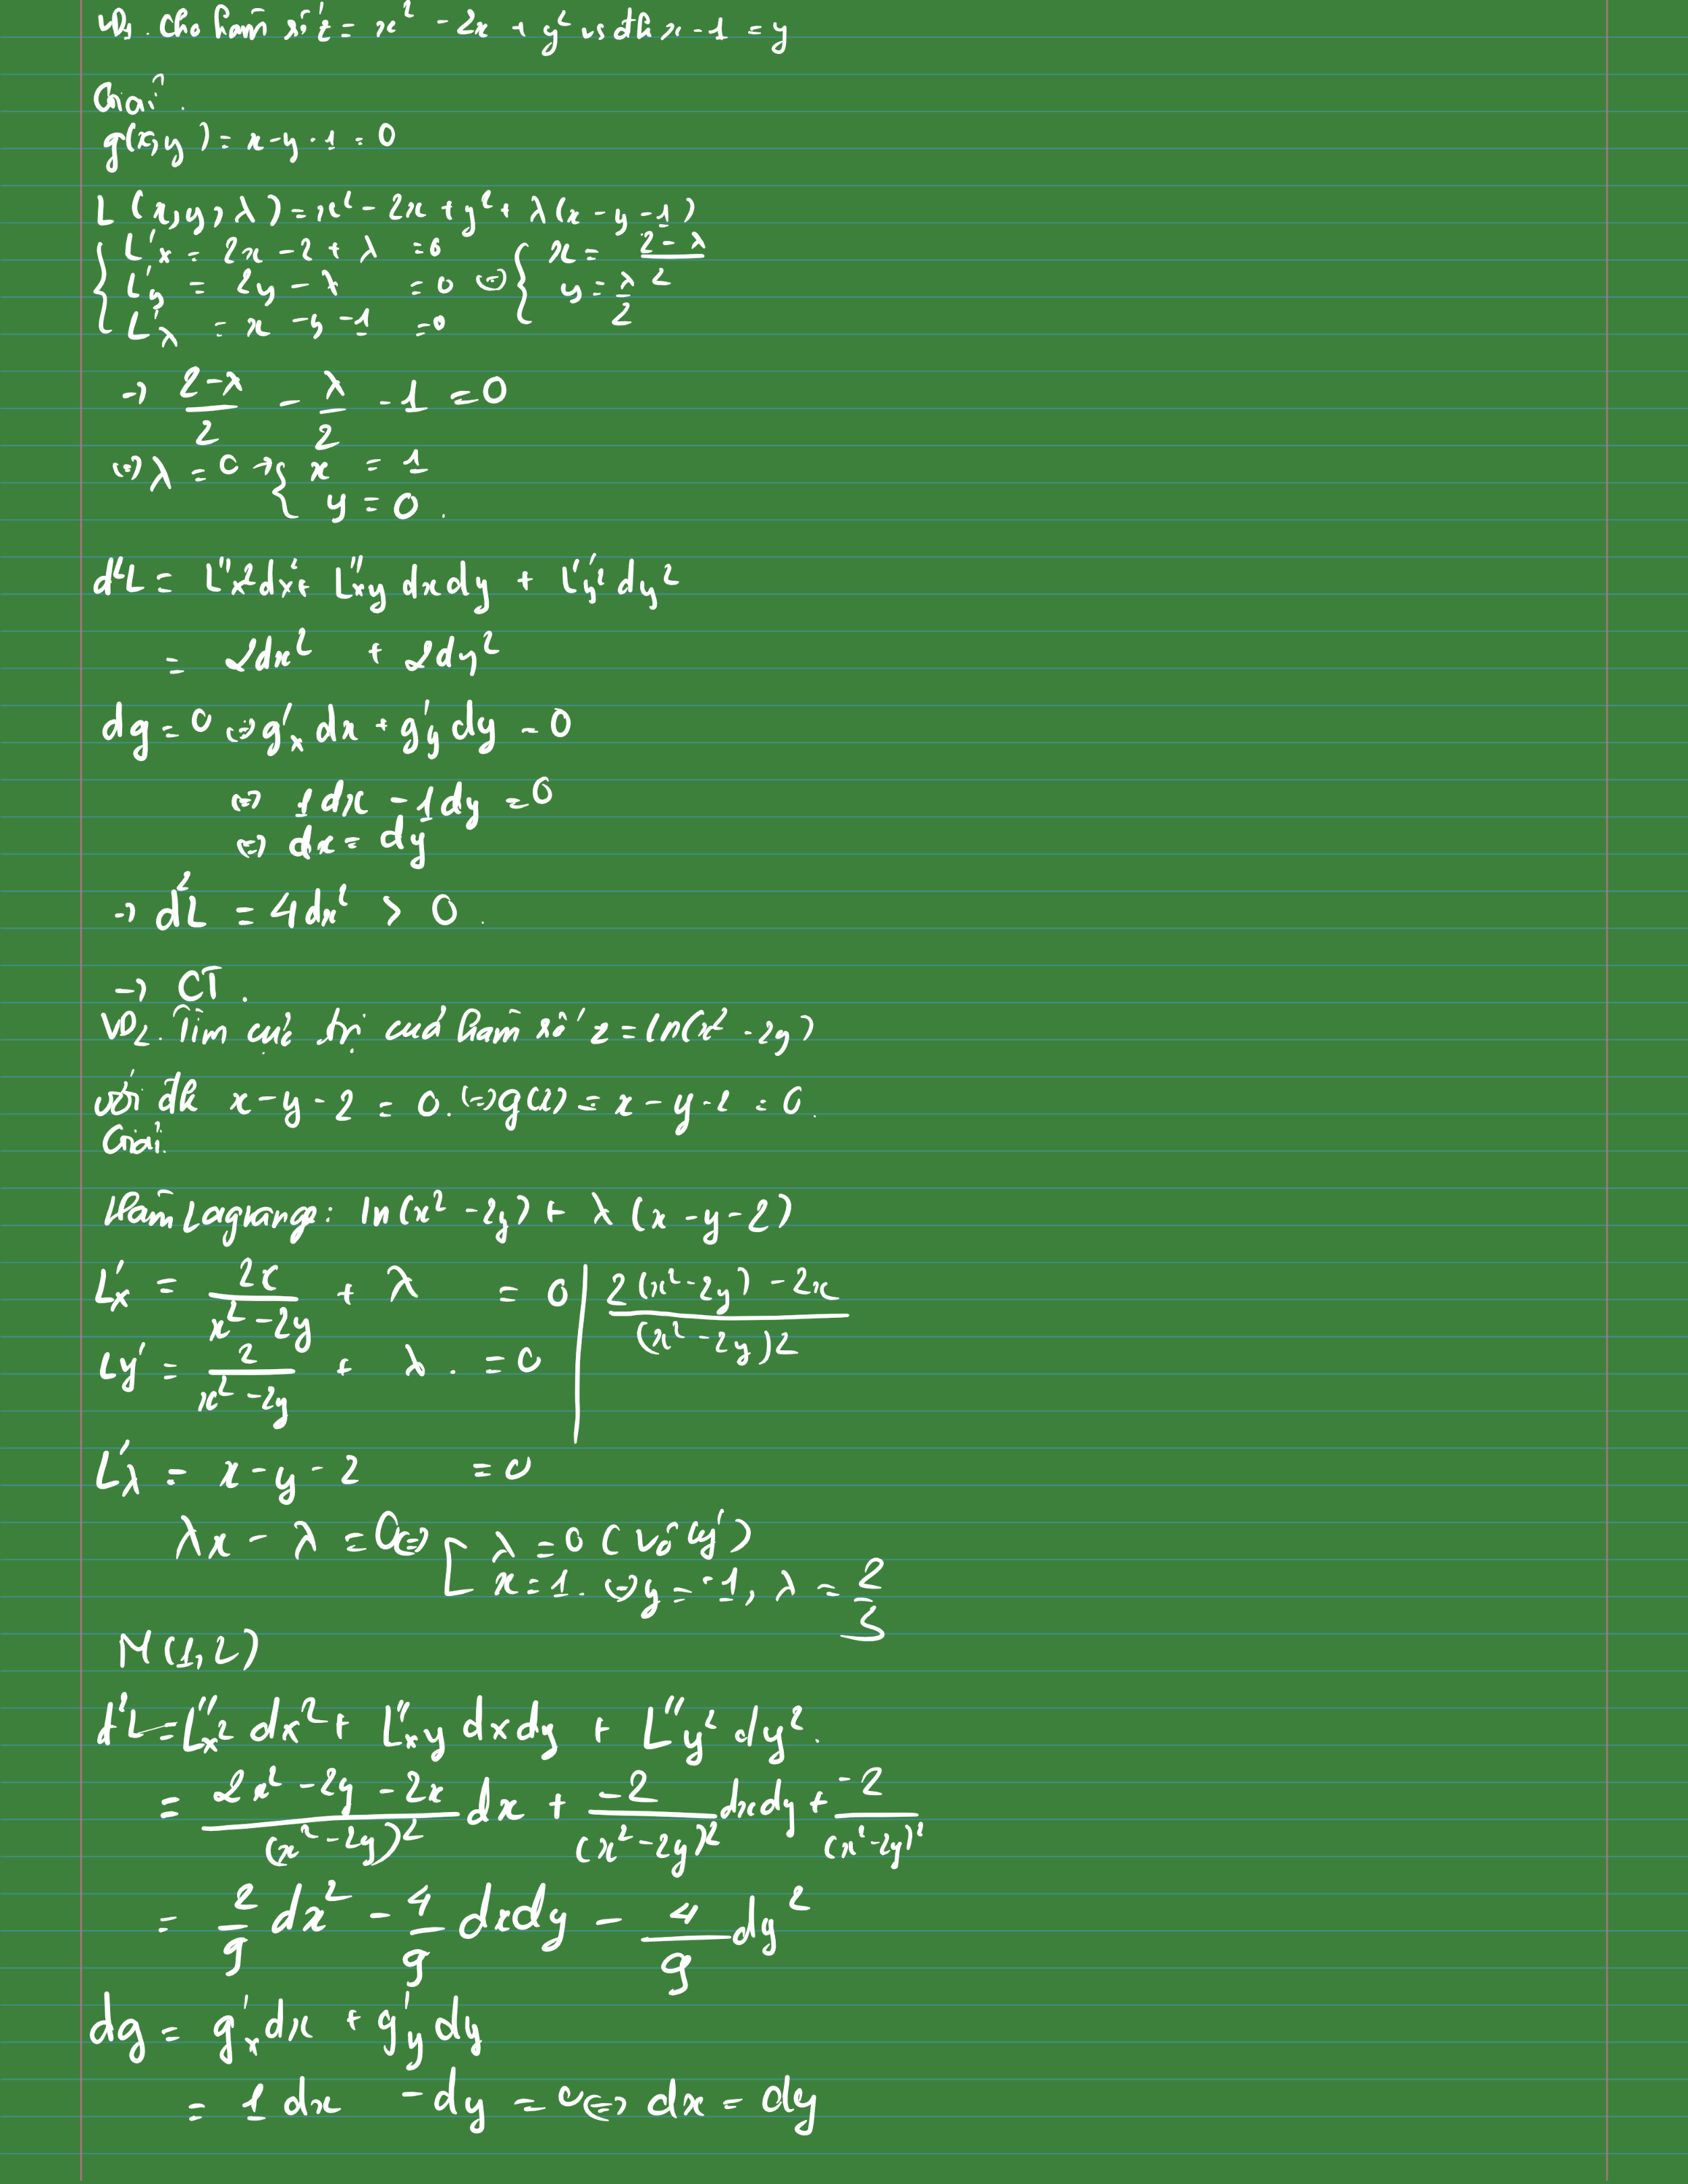 VD1. Cho hàm số z = x² - 2x + y² vs đk x - 1 = y
Giải.
g(x,y) = x - y - 1 = 0
L(x,y,λ) = x² - 2x + y² + λ(x - y - 1)
{ L'x = 2x - 2 + λ = 0 ⇔ { x = (2 - λ)/2
L'y = 2y - λ = 0 y = λ/2
L'λ = x - y - 1 = 0
→ (2-λ)/2 - λ/2 - 1 = 0
⇔ λ = 0 → { x = 1
y = 0.
d²L = L''x² dx² + L''xy dxdy + L''y² dy²
= 2dx² + 2dy²
dg = 0 ⇔ g'x dx + g'y dy = 0
⇔ 1dx - 1dy = 0
⇔ dx = dy
→ d²L = 4dx² > 0.
→ CT.
VD2. Tìm cực trị của hàm số z = ln(x² - 2y)
với đk x - y - 2 = 0. ⇔ g(x) = x - y - 2 = 0.
Giải.
Hàm Lagrange: ln(x² - 2y) + λ(x - y - 2)
L'x = 2x/(x² - 2y) + λ = 0 | (2(x² - 2y) - 2x)/(x² - 2y)2
Ly' = 2/(x² - 2y) + λ. = 0
L'λ = x - y - 2 = 0
λx - λ = 0 ⇔ [ λ = 0 (vô lý)
x = 1. ⇔ y = -1, λ = 2/3
M(1,2)
d²L = L''x² dx² + L''xy dxdy + L''y² dy².
= (2x² - 2y - 2x)/(x² - 2y)² dx + -2/(x² - 2y)² dxdy + -2/(x² - 2y)²
= 2/9 dx² - 4/9 dxdy - 4/9 dy²
dg = g'x dx + g'y dy
= 1dx - dy = 0 ⇔ dx = dy